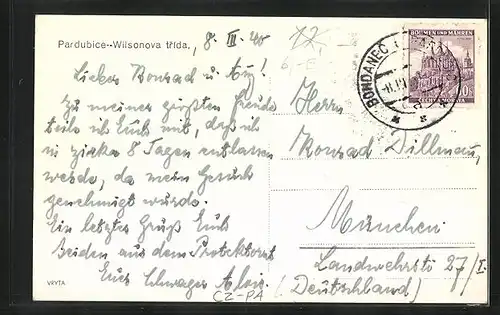 Pardubice--Wilsonova třída.
8. III. 40
Lieber Konrad u.
Zu meiner größten Freude
teile ich Euch mit, daß ich
in zirka 8 Tagen entlassen
werde, da mein Gesuch
genehmigt wurde.
Ein letzter Gruß Euch
beiden aus dem Protektorat
Euer Schwager Alois.
VRYTA
CZ-PA
BÖHMEN UND MÄHREN
BOHDANEČ
Herrn
Konrad Dillmann,
München
Landwehrstr 27/I.
(Deutschland)